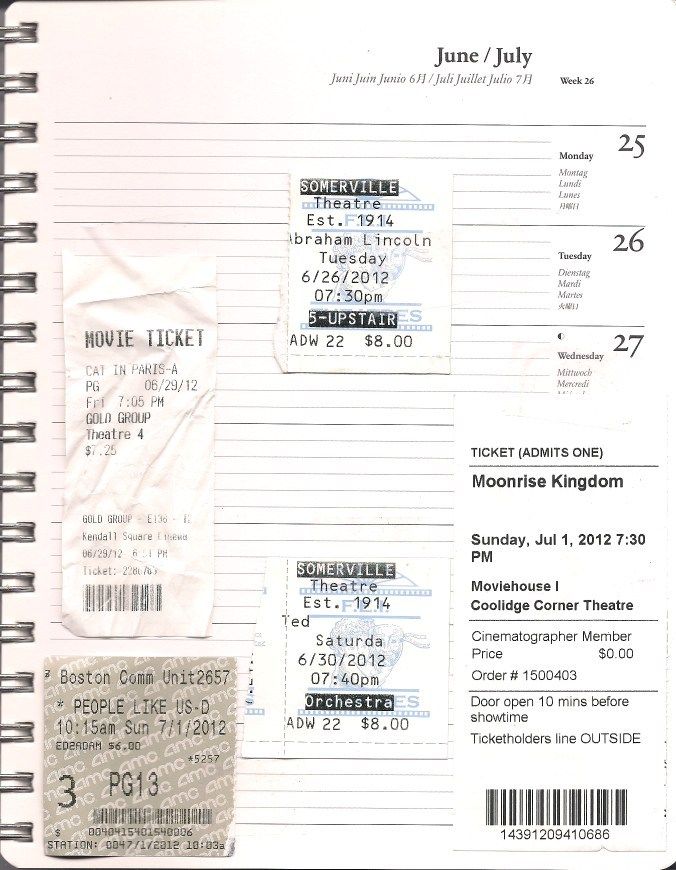 June / July
Juni Juin Junio 6月 / Juli Juillet Julio 7月
Week 26
25
Monday
Montag
Lundi
Lunes
月曜日
26
Tuesday
Dienstag
Mardi
Martes
火曜日
27
Wednesday
Mittwoch
Mercredi
SOMERVILLE
Theatre
Est. 1914
braham Lincoln
Tuesday
6/26/2012
07:30pm
5-UPSTAIR
ADW 22 $8.00
MOVIE TICKET
CAT IN PARIS-A
PG 06/29/12
Fri 7:05 PM
GOLD GROUP
Theatre 4
$7.25
GOLD GROUP - E136 -
Kendall Square Cinema
06/29/12 PM
Ticket:
SOMERVILLE
Theatre
Est. 1914
Ted
Saturda
6/30/2012
07:40pm
Orchestra
ADW 22 $8.00
TICKET (ADMITS ONE)
Moonrise Kingdom
Sunday, Jul 1, 2012 7:30
PM
Moviehouse I
Coolidge Corner Theatre
Cinematographer Member
Price $0.00
Order # 1500403
Door open 10 mins before
showtime
Ticketholders line OUTSIDE
14391209410686
Boston Comm Unit2657
* PEOPLE LIKE US-D
10:15am Sun 7/1/2012
EDZADAM $6.00
*5257
3 PG13
0040415401540006
STATION: 0047/1/2012 10:03a